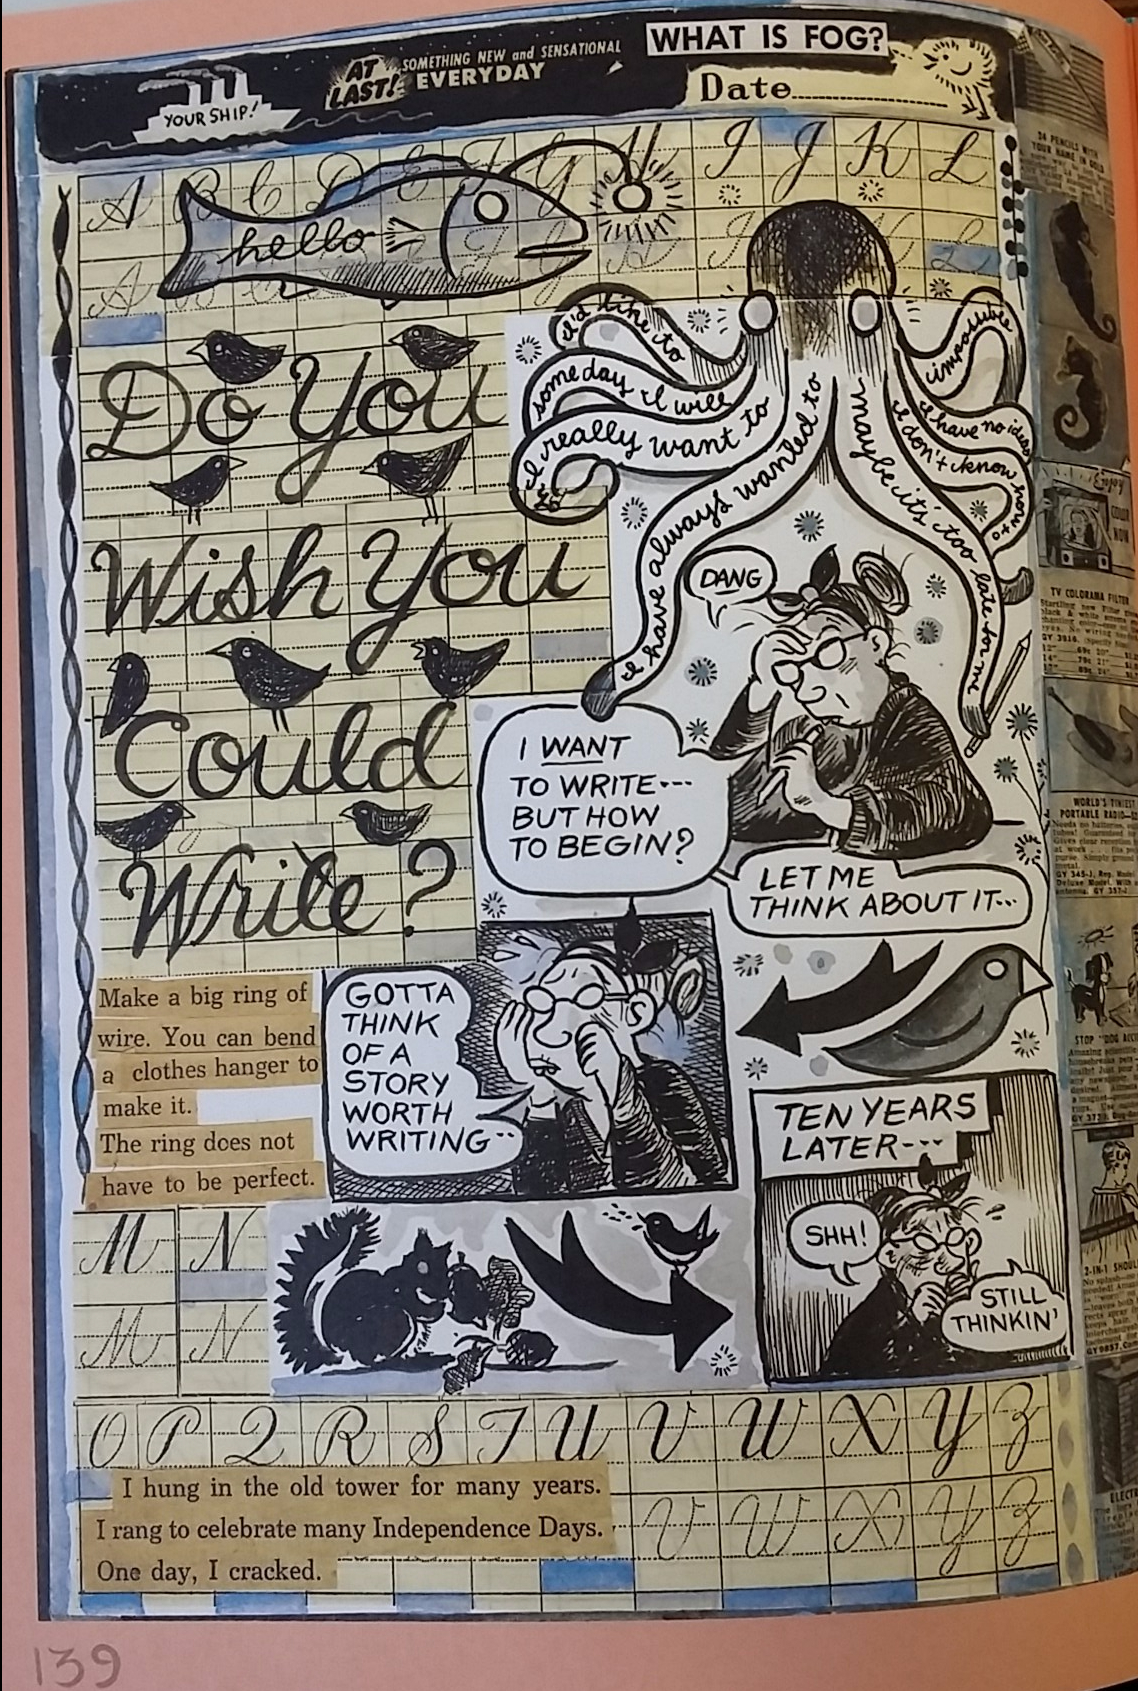 YOUR SHIP!
AT
LAST!
SOMETHING NEW and SENSATIONAL
EVERYDAY
WHAT IS FOG?
Date
A B C D E F G H I J K L
hello
A B
Do You
Wish You
Could
Write?
I'd like to
some day I will
I really want to
I have always wanted to
maybe it's too late for me
I don't know how to
I have no ideas
impossible
DANG
I WANT
TO WRITE---
BUT HOW
TO BEGIN?
LET ME
THINK ABOUT IT...
Make a big ring of
wire. You can bend
a clothes hanger to
make it.
The ring does not
have to be perfect.
GOTTA
THINK
OF A
STORY
WORTH
WRITING--
TEN YEARS
LATER---
SHH!
STILL
THINKIN'
M N
M N
O P Q R S T U V W X Y Z
V W X Y Z
I hung in the old tower for many years.
I rang to celebrate many Independence Days.
One day, I cracked.
139
24 PENCILS WITH
YOUR NAME IN GOLD
Enjoy
COLOR
NOW
TV COLORAMA FILTER
WORLD'S TINIEST
PORTABLE RADIO